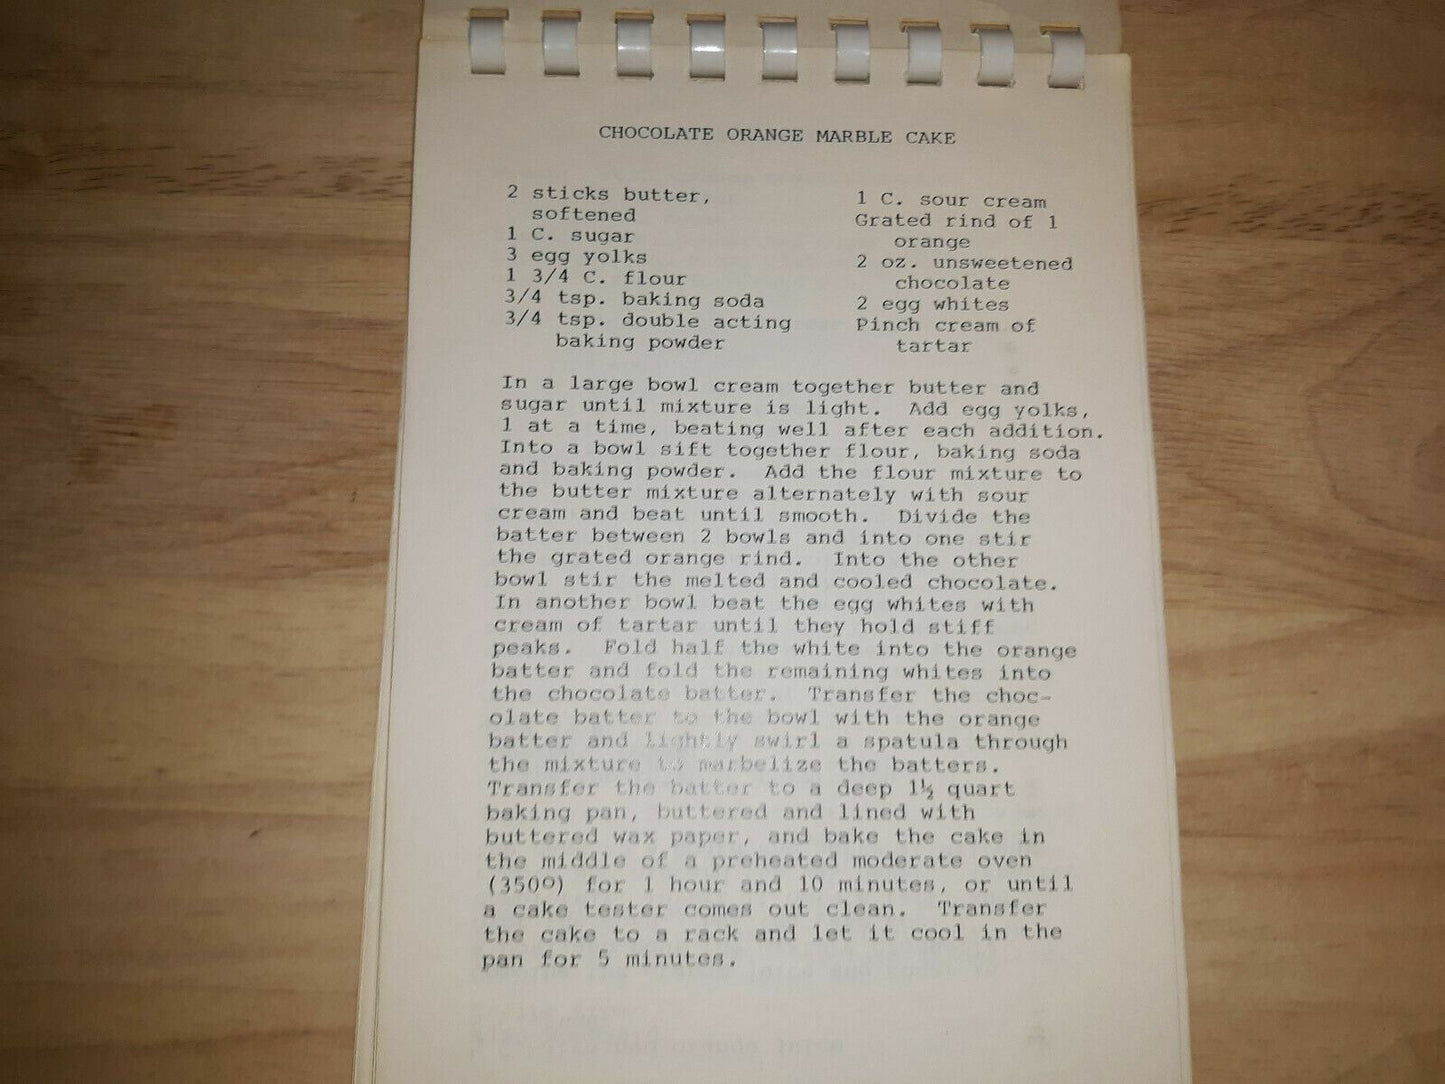 CHOCOLATE ORANGE MARBLE CAKE
2 sticks butter,
softened
1 C. sugar
3 egg yolks
1 3/4 C. flour
3/4 tsp. baking soda
3/4 tsp. double acting
baking powder
1 C. sour cream
Grated rind of 1
orange
2 oz. unsweetened
chocolate
2 egg whites
Pinch cream of
tartar
In a large bowl cream together butter and
sugar until mixture is light. Add egg yolks,
1 at a time, beating well after each addition.
Into a bowl sift together flour, baking soda
and baking powder. Add the flour mixture to
the butter mixture alternately with sour
cream and beat until smooth. Divide the
batter between 2 bowls and into one stir
the grated orange rind. Into the other
bowl stir the melted and cooled chocolate.
In another bowl beat the egg whites with
cream of tartar until they hold stiff
peaks. Fold half the white into the orange
batter and fold the remaining whites into
the chocolate batter. Transfer the choc-
olate batter to the bowl with the orange
batter and lightly swirl a spatula through
the mixture to marbelize the batters.
Transfer the batter to a deep 1½ quart
baking pan, buttered and lined with
buttered wax paper, and bake the cake in
the middle of a preheated moderate oven
(350º) for 1 hour and 10 minutes, or until
a cake tester comes out clean. Transfer
the cake to a rack and let it cool in the
pan for 5 minutes.